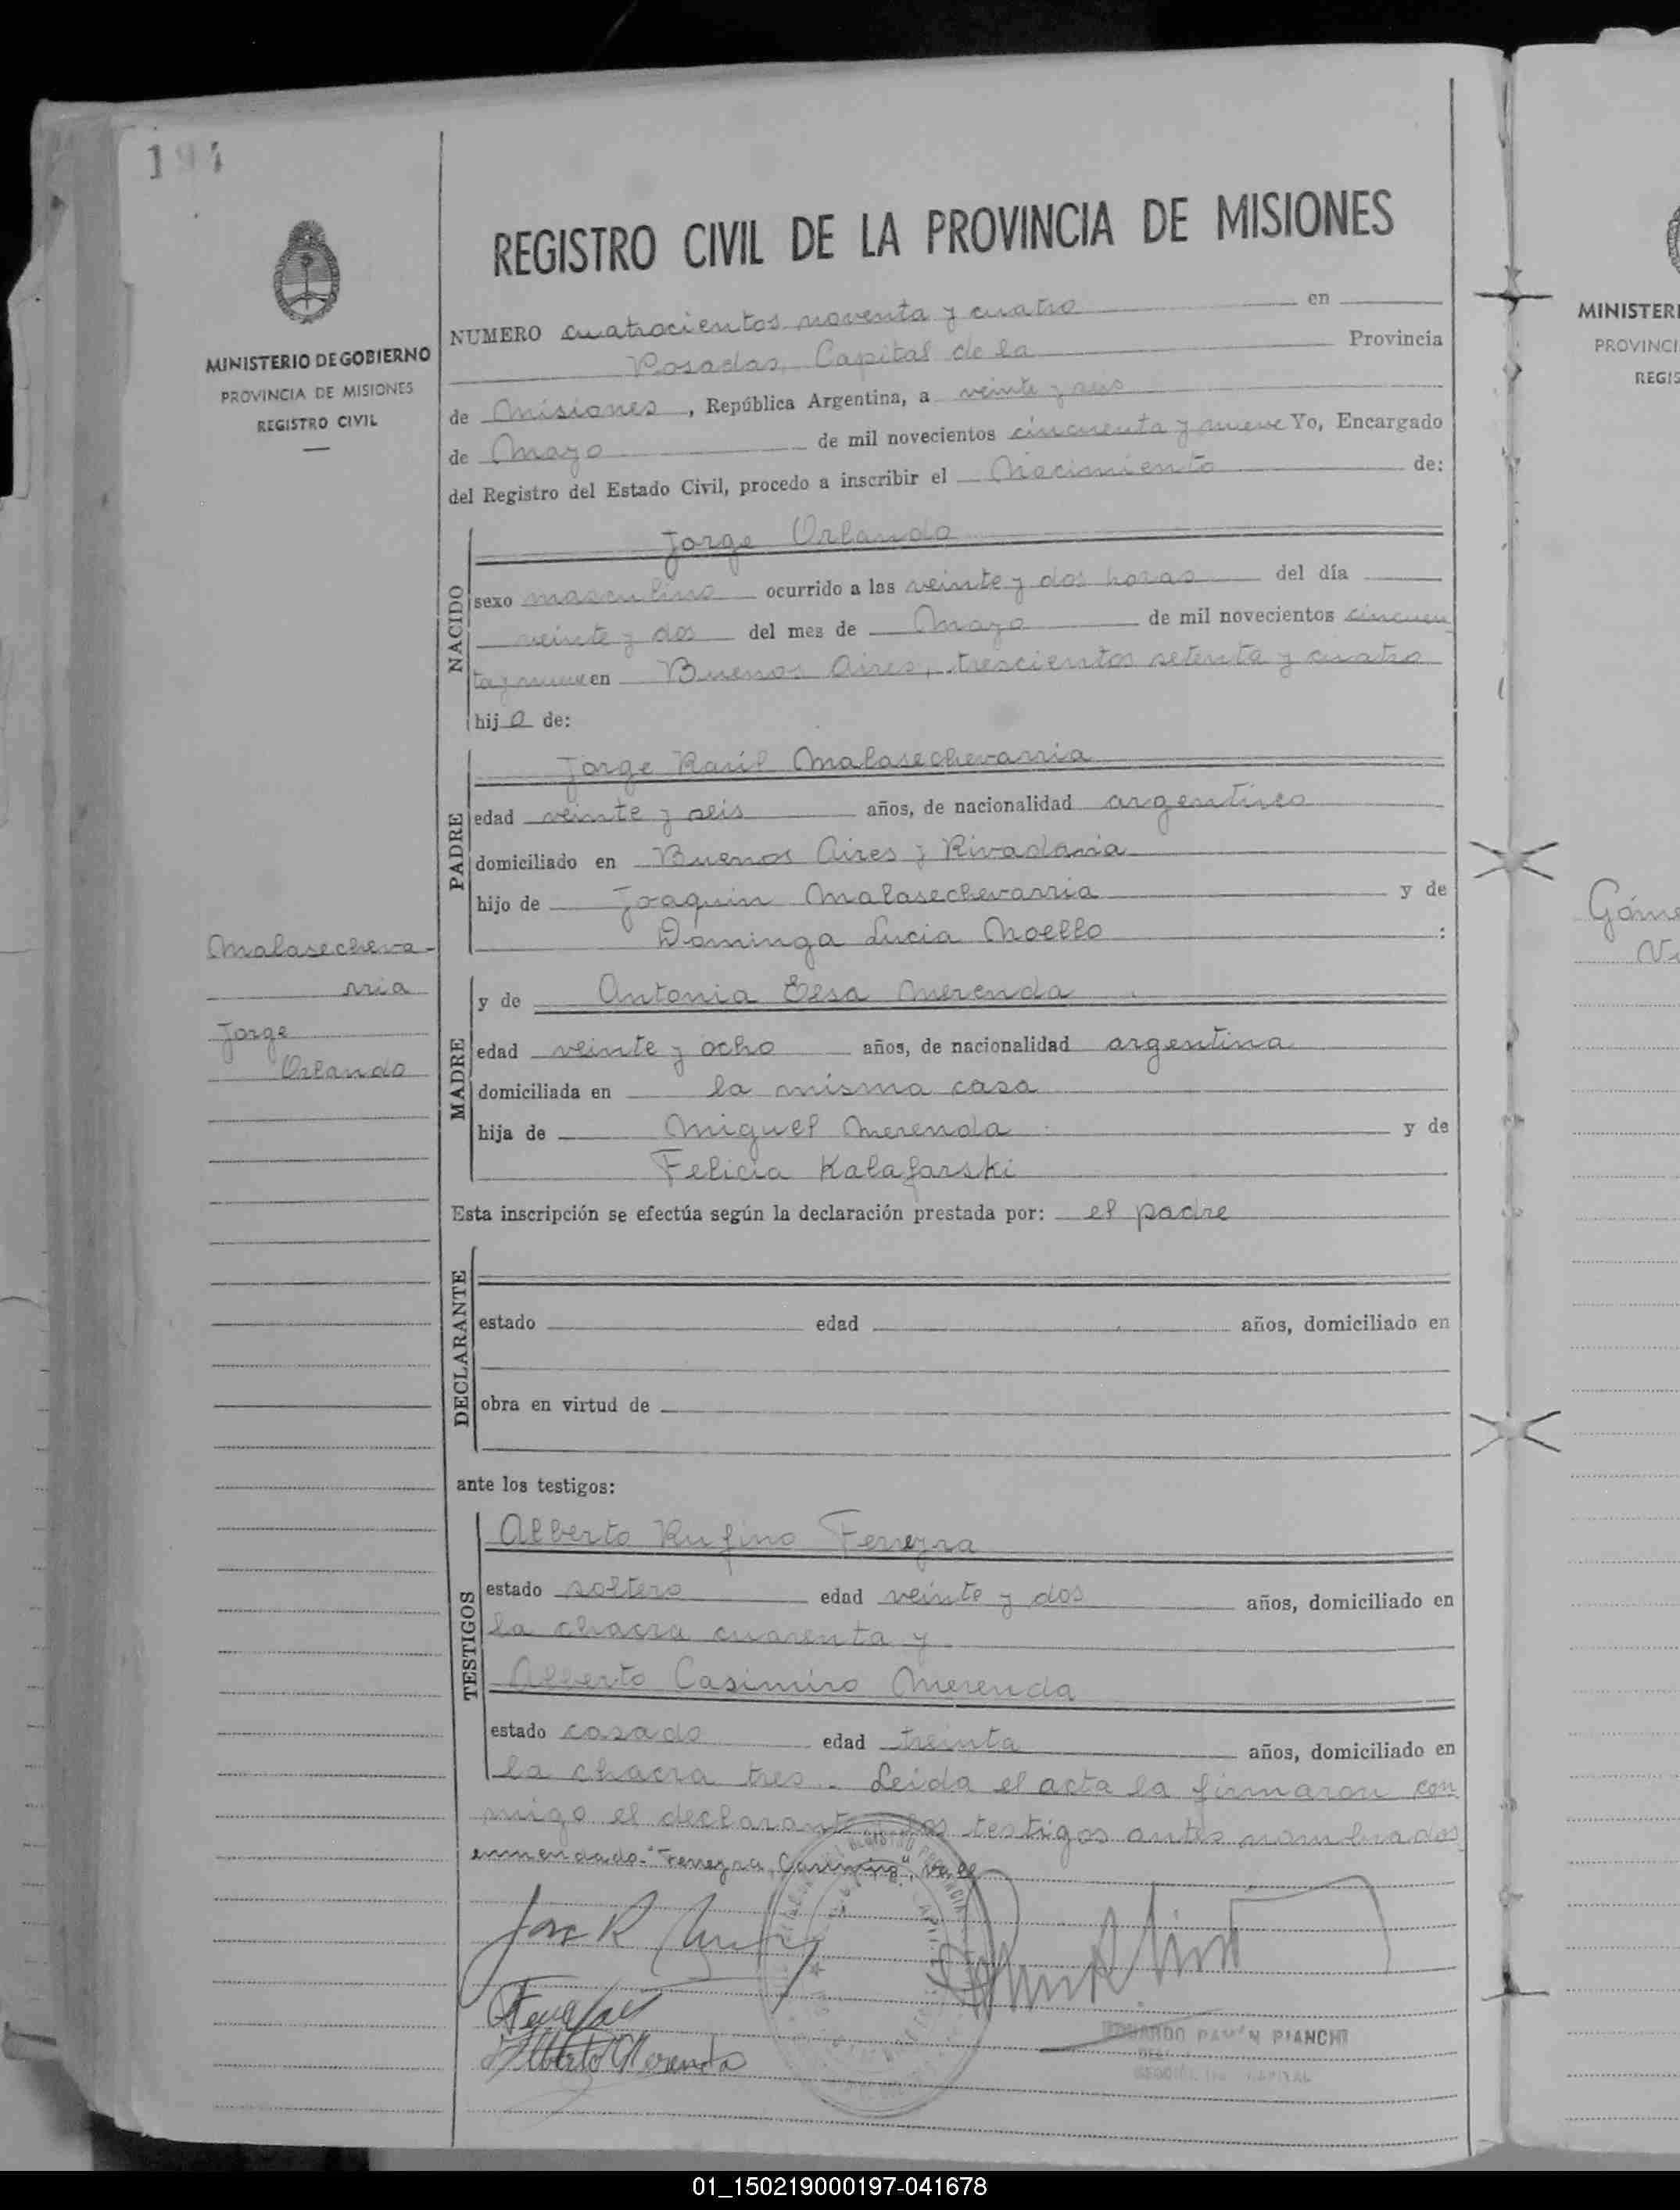 194
REGISTRO CIVIL DE LA PROVINCIA DE MISIONES
MINISTERIO DE GOBIERNO
PROVINCIA DE MISIONES
REGISTRO CIVIL
NUMERO cuatrocientos noventa y cuatro en
Posadas, Capital de la Provincia
de Misiones, República Argentina, a veinte y seis
de Mayo de mil novecientos cincuenta y nueve Yo, Encargado
del Registro del Estado Civil, procedo a inscribir el Nacimiento de:
NACIDO
Jorge Orlando
sexo masculino ocurrido a las veinte y dos horas del día
veinte y dos del mes de Mayo de mil novecientos cincuen
ta y nueve en Buenos Aires, trescientos setenta y cuatro
hijo de:
PADRE
Jorge Raúl Malasechevarria
edad veinte y seis años, de nacionalidad argentino
domiciliado en Buenos Aires y Rivadavia
hijo de Joaquin Malasechevarria y de
Dominga Lucia Noello :
Malasecheva-
rria
Jorge
Orlando
MADRE
y de Antonia Elsa Merenda
edad veinte y ocho años, de nacionalidad argentina
domiciliada en la misma casa
hija de Miguel Merenda y de
Felicia Kalafarski
Esta inscripción se efectúa según la declaración prestada por: el padre
DECLARANTE
estado edad años, domiciliado en
obra en virtud de
ante los testigos:
TESTIGOS
Alberto Rufino Ferreyra
estado soltero edad veinte y dos años, domiciliado en
la chacra cuarenta y
Alberto Casimiro Merenda
estado casado edad treinta años, domiciliado en
la chacra tres. Leida el acta la firmaron con
migo el declarante los testigos antes nombrados
enmendado-"Ferreyra, Casimiro", vale
Alberto Merenda
EDUARDO RAMON PIANCHI
CAPITAL
MINISTERI
PROVINCI
REGIS
Góme
01_150219000197-041678